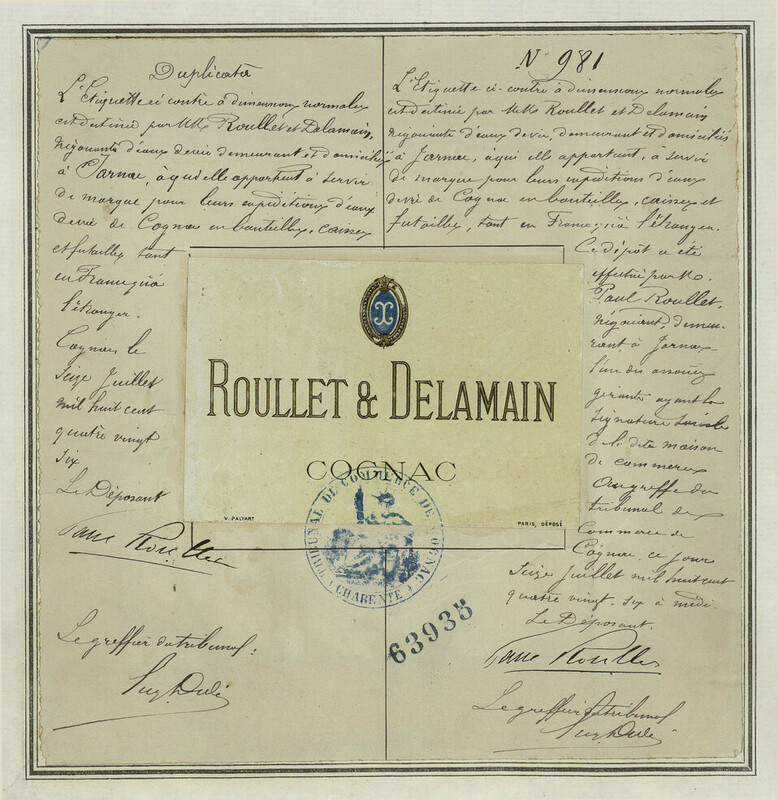 Duplicata
L'Etiquette ci contre à dimensions normales
est destinée par MM. Roullet et Delamain,
négociants d'eaux de vie demeurant et domiciliés
à Jarnac, à qui elle appartient à servir
de marque pour leurs expéditions d'eaux
de vie de Cognac en bouteilles, caisses
et futailles tant
en France qu'à
l'étranger.
Cognac le
seize Juillet
mil huit cent
quatre vingt
six
Le Déposant
Paul Roullet
Le greffier du tribunal :
N° 981
L'Etiquette ci-contre à dimensions normales
est destinée par MM. Roullet et Delamain
négociants d'eaux de vie, demeurant et domiciliés
à Jarnac, à qui elle appartient, à servir
de marque pour leurs expéditions d'eaux
de vie de Cognac en bouteilles, caisses et
futailles, tant en France, qu'à l'étranger.
Ce dépôt a été
effectué par M.
Paul Roullet,
négociant, demeu-
rant à Jarnac
l'un des associés
gérants ayant la
signature sociale
de la dite maison
de commerce
au greffe du
tribunal de
Commerce de
Cognac ce jour
seize Juillet mil huit cent
quatre vingt. six à midi.
Le Déposant.
Paul Roullet
Le greffier du tribunal
ROULLET & DELAMAIN
COGNAC
V. PALYART
PARIS, DÉPOSÉ
TRIBUNAL DE COMMERCE DE COGNAC
(CHARENTE)
63935